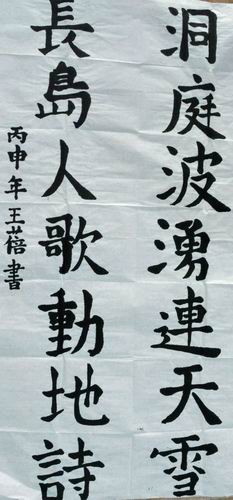 洞庭波湧連天雪
長島人歌動地詩
丙申年王蓓書